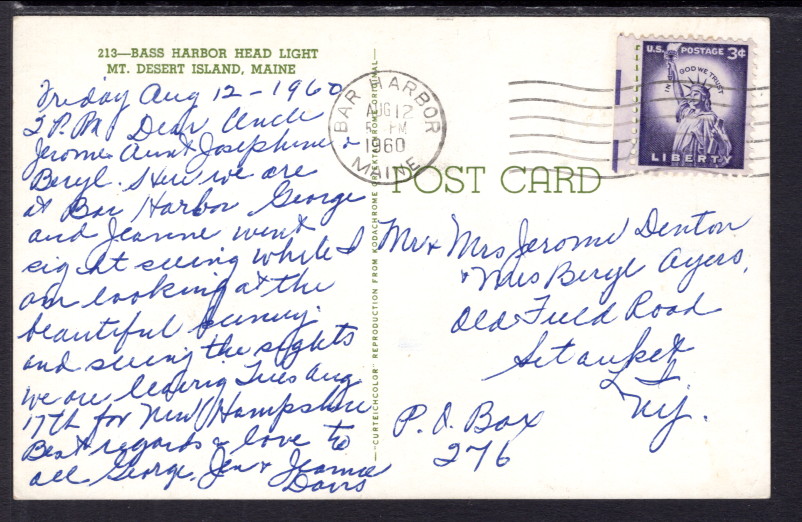 213—BASS HARBOR HEAD LIGHT
MT. DESERT ISLAND, MAINE
Friday Aug 12 - 1960
2 P.M. Dear Uncle
Jerome Aunt Josephine +
Beryl. Here we are
at Bar Harbor George
and Jeanne went
sight seeing while I
am looking at the
beautiful scenery
and seeing the sights
we are leaving Tues Aug
17th for New Hampshire
Best regards & love to
all George, Jen + Jeanne
Davis
"CURTEICHCOLOR" REPRODUCTION FROM KODACHROME OR EKTACHROME ORIGINAL
BAR HARBOR
AUG 12
PM
1960
MAINE
U.S. POSTAGE 3¢
IN GOD WE TRUST
LIBERTY
POST CARD
Mr + Mrs Jerome Denton
+ Mrs Beryl Ayers,
Old Field Road
Setauket
L. I.
N.Y.
P. O. Box
276